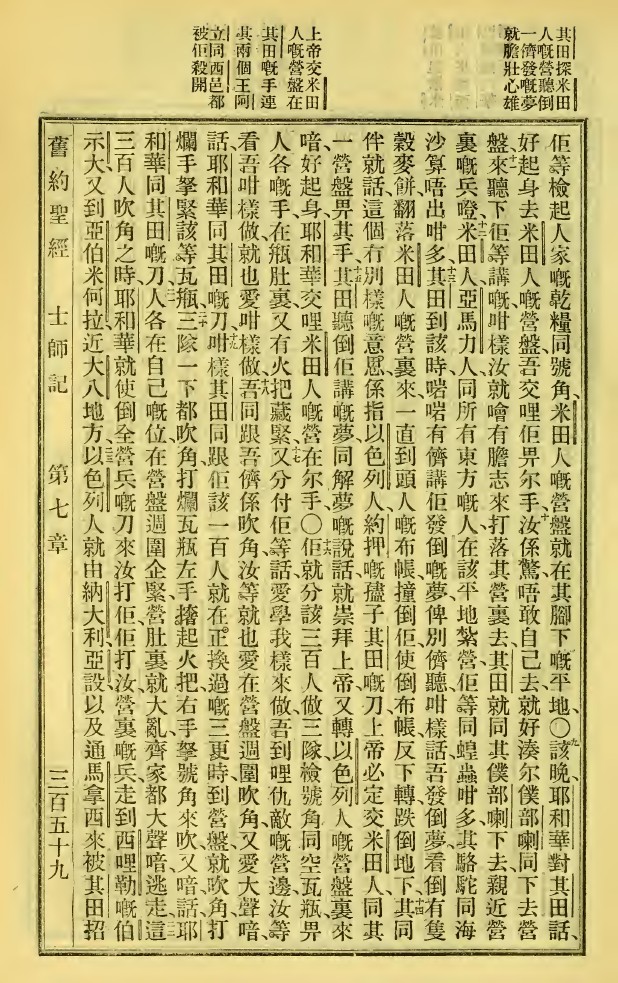 其田探米田
人嘅營聽倒
一儕發嘅夢
就膽壯心雄
上帝交米田
人嘅營盤在
其田嘅手連
其兩個王阿
立同西邑都
被佢殺開
佢等檢起人家嘅乾糧同號角、米田人嘅營盤就在其腳下嘅平地、○九該晚耶和華對其田話、
好起身去米田人嘅營盤吾交哩佢畀尔手、十汝係驚唔敢自己去就好湊尔僕部喇同下去營
盤來十一聽下佢等講嘅咁樣汝就噲有膽志來打落其營裏去、其田就同其僕部喇下去親近營
裏嘅兵、十二噔米田人亞馬力人同所有東方嘅人在該平地紮營佢等同蝗蟲咁多其駱駝同海
沙算唔出咁多、十三其田到該時啱啱有儕講佢發倒嘅夢俾別儕聽咁樣話吾發倒夢看倒有隻
穀麥餅翻落米田人嘅營裏來一直到頭人嘅布帳撞倒佢使倒布帳反下轉跌倒地下、十四其同
伴就話這個冇別樣嘅意思係指以色列人約押嘅孻子其田嘅刀上帝必定交米田人同其
一營盤畀其手、十五其田聽倒佢講嘅夢同解夢嘅說話就崇拜上帝又轉以色列人嘅營盤裏來
喑好起身耶和華交哩米田人嘅營在尔手○十六佢就分該三百人做三隊檢號角同空瓦瓶畀
人各嘅手在瓶肚裏又有火把藏緊、十七又分付佢等話愛學我樣來做吾到哩仇敵嘅營邊汝等
看吾咁樣做就也愛咁樣做、十八吾同跟吾儕係吹角汝等就也愛在營盤週圍吹角又愛大聲喑、
話耶和華同其田嘅刀咁樣、十九其田同跟佢該一百人就在正換過嘅三更時到營盤就吹角打
爛手拏緊該等瓦瓶、二十三隊一下都吹角打爛瓦瓶左手撦起火把右手拏號角來吹又喑話耶
和華同其田嘅刀、二一人各在自己嘅位在營盤週圍企緊營肚裏就大亂齊家都大聲喑逃走、二二這
三百人吹角之時耶和華就使倒全營兵嘅刀來汝打佢佢打汝營裏嘅兵走到西哩勒嘅伯
示大又到亞伯米何拉近大八地方、二三以色列人就由納大利亞設以及通馬拿西來被其田招
舊約聖經　士師記　第七章　三百五十九